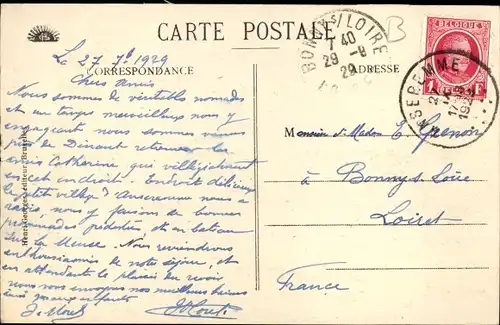 CARTE POSTALE
BELGIQUE
BONNY S/LOIRE
7 40
29 -8
29
CORRESPONDANCE
ADRESSE
ANSEREMME
Le 27
1929
Chers Amis
Nous sommes de véritables nomades
et un temps merveilleux nous y
engageant nous sommes venus
près de Dinant retrouver les
amis Catherine qui villégiaturent
en cet endroit. Endroit délicieux
petit village d'Anseremme nous a
ravis, nous y faisons de bonnes
promenades pédestres, et en bateau
sur la Meuse. Nous reviendrons
enthousiasmés de notre séjour, et
en attendant le plaisir de vous revoir
nous vous envoyons nos meilleurs baisers
Monsieur et Madame E.
à Bonny s. Loire
Loiret
France
Henri Georges, éditeur, Bruxelles
B